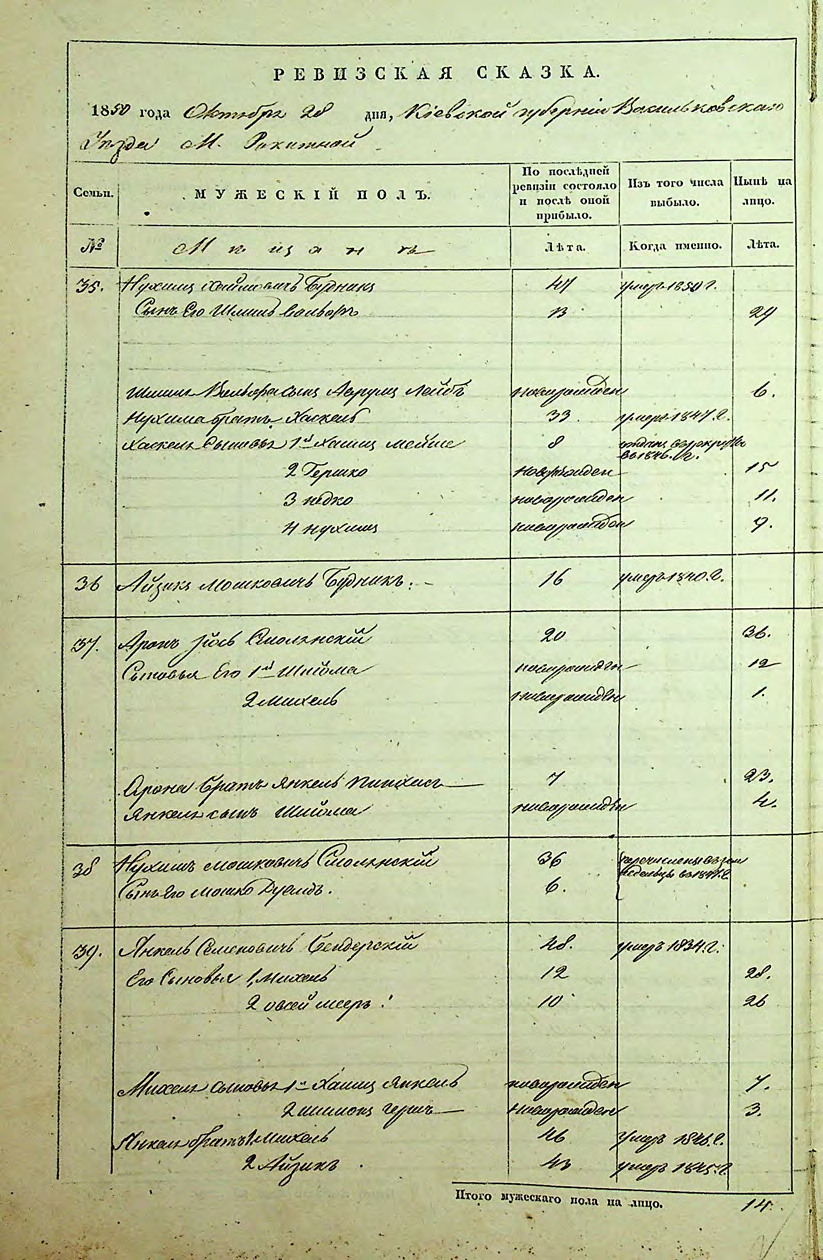 РЕВИЗСКАЯ СКАЗКА.
1850 года Октября 28 дня, Кіевской губерніи Васильковскаго
Уѣзда М. Ракитной
Семьи. МУЖЕСКІЙ ПОЛЪ. По послѣдней ревизіи состояло и послѣ оной прибыло. Изъ того числа выбыло. Нынѣ на лицо.
№ Мѣщанъ Лѣта. Когда именно. Лѣта.
35. Нухимъ Хаймовичъ Будникъ 47 умеръ 1850 г.
Сынъ Его Шлима Вольфъ 13 29
Шлимы Вольфа сынъ Аврумъ Лейбъ новорожден 6.
Нухима братъ Хаскель 33 умеръ 1847. г.
Хаскеля Сыновья 1й Хаимъ Мейше 8 отданъ въ рекруты въ 1846. г.
2 Гершко новорожден 15
3 новорожден 11.
4 Нухимъ новорожден 7.
36 Айзикъ Мошковичъ Будникъ. 16 умеръ 1840. г.
37. Аронъ Іось Смолянскій 20 36.
Сыновья Его 1й Шлйома новорожден 12
2 Михель новорожден 1.
Арона братъ Янкель Пинхасъ 7 23.
Янкеля сынъ Шлйома новорожден 4.
38 Нухимъ Мошковичъ Смолянскій 36 перечислены въ земледѣльцы въ 184 г.
Сынъ Его Мошко Дувидъ. 6.
39. Янкель Семеновичъ Бендерскій 48. умеръ 1834. г.
Его Сыновья 1, Михель 12 28.
2 Овсей Мееръ 10 26
Михеля сыновья 1й Хаимъ Янкель новорожден 7.
2 Шимонъ Гершъ новорожден 3.
Янкеля братья 1 Михель 46 Умеръ 184 г.
2 Айзикъ 43 умеръ 1845 г.
Итого мужескаго пола на лицо. 14.